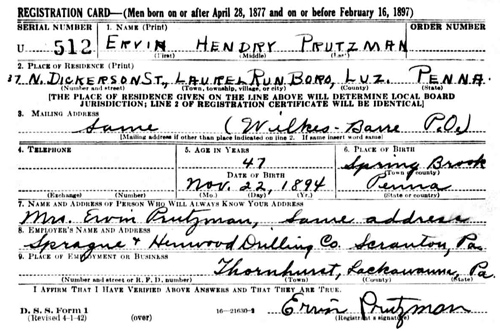 REGISTRATION CARD—(Men born on or after April 28, 1877 and on or before February 16, 1897)
SERIAL NUMBER 1. NAME (Print) ORDER NUMBER
U 512 ERVIN HENDRY PRUTZMAN
(First) (Middle) (Last)
2. PLACE OF RESIDENCE (Print)
37 N. DICKERSON ST, LAUREL RUN BORO, LUZ. PENNA.
(Number and street) (Town, township, village, or city) (County) (State)
[THE PLACE OF RESIDENCE GIVEN ON THE LINE ABOVE WILL DETERMINE LOCAL BOARD
JURISDICTION; LINE 2 OF REGISTRATION CERTIFICATE WILL BE IDENTICAL]
3. MAILING ADDRESS
Same (Wilkes-Barre P.O.)
[Mailing address if other than place indicated on line 2. If same insert word same]
4. TELEPHONE 5. AGE IN YEARS 6. PLACE OF BIRTH
47 Spring Brook
DATE OF BIRTH (Town or county)
Nov. 22, 1894 Penna
(Exchange) (Number) (Mo.) (Day) (Yr.) (State or country)
7. NAME AND ADDRESS OF PERSON WHO WILL ALWAYS KNOW YOUR ADDRESS
Mrs. Ervin Prutzman, Same address
8. EMPLOYER'S NAME AND ADDRESS
Sprague & Henwood Drilling Co. Scranton, Pa.
9. PLACE OF EMPLOYMENT OR BUSINESS
Thornhurst, Lackawanna, Pa.
(Number and street or R. F. D. number) (Town) (County) (State)
I AFFIRM THAT I HAVE VERIFIED ABOVE ANSWERS AND THAT THEY ARE TRUE.
D. S. S. Form 1 16—21630-2 Ervin Prutzman
(Revised 4-1-42) (over) (Registrant's signature)